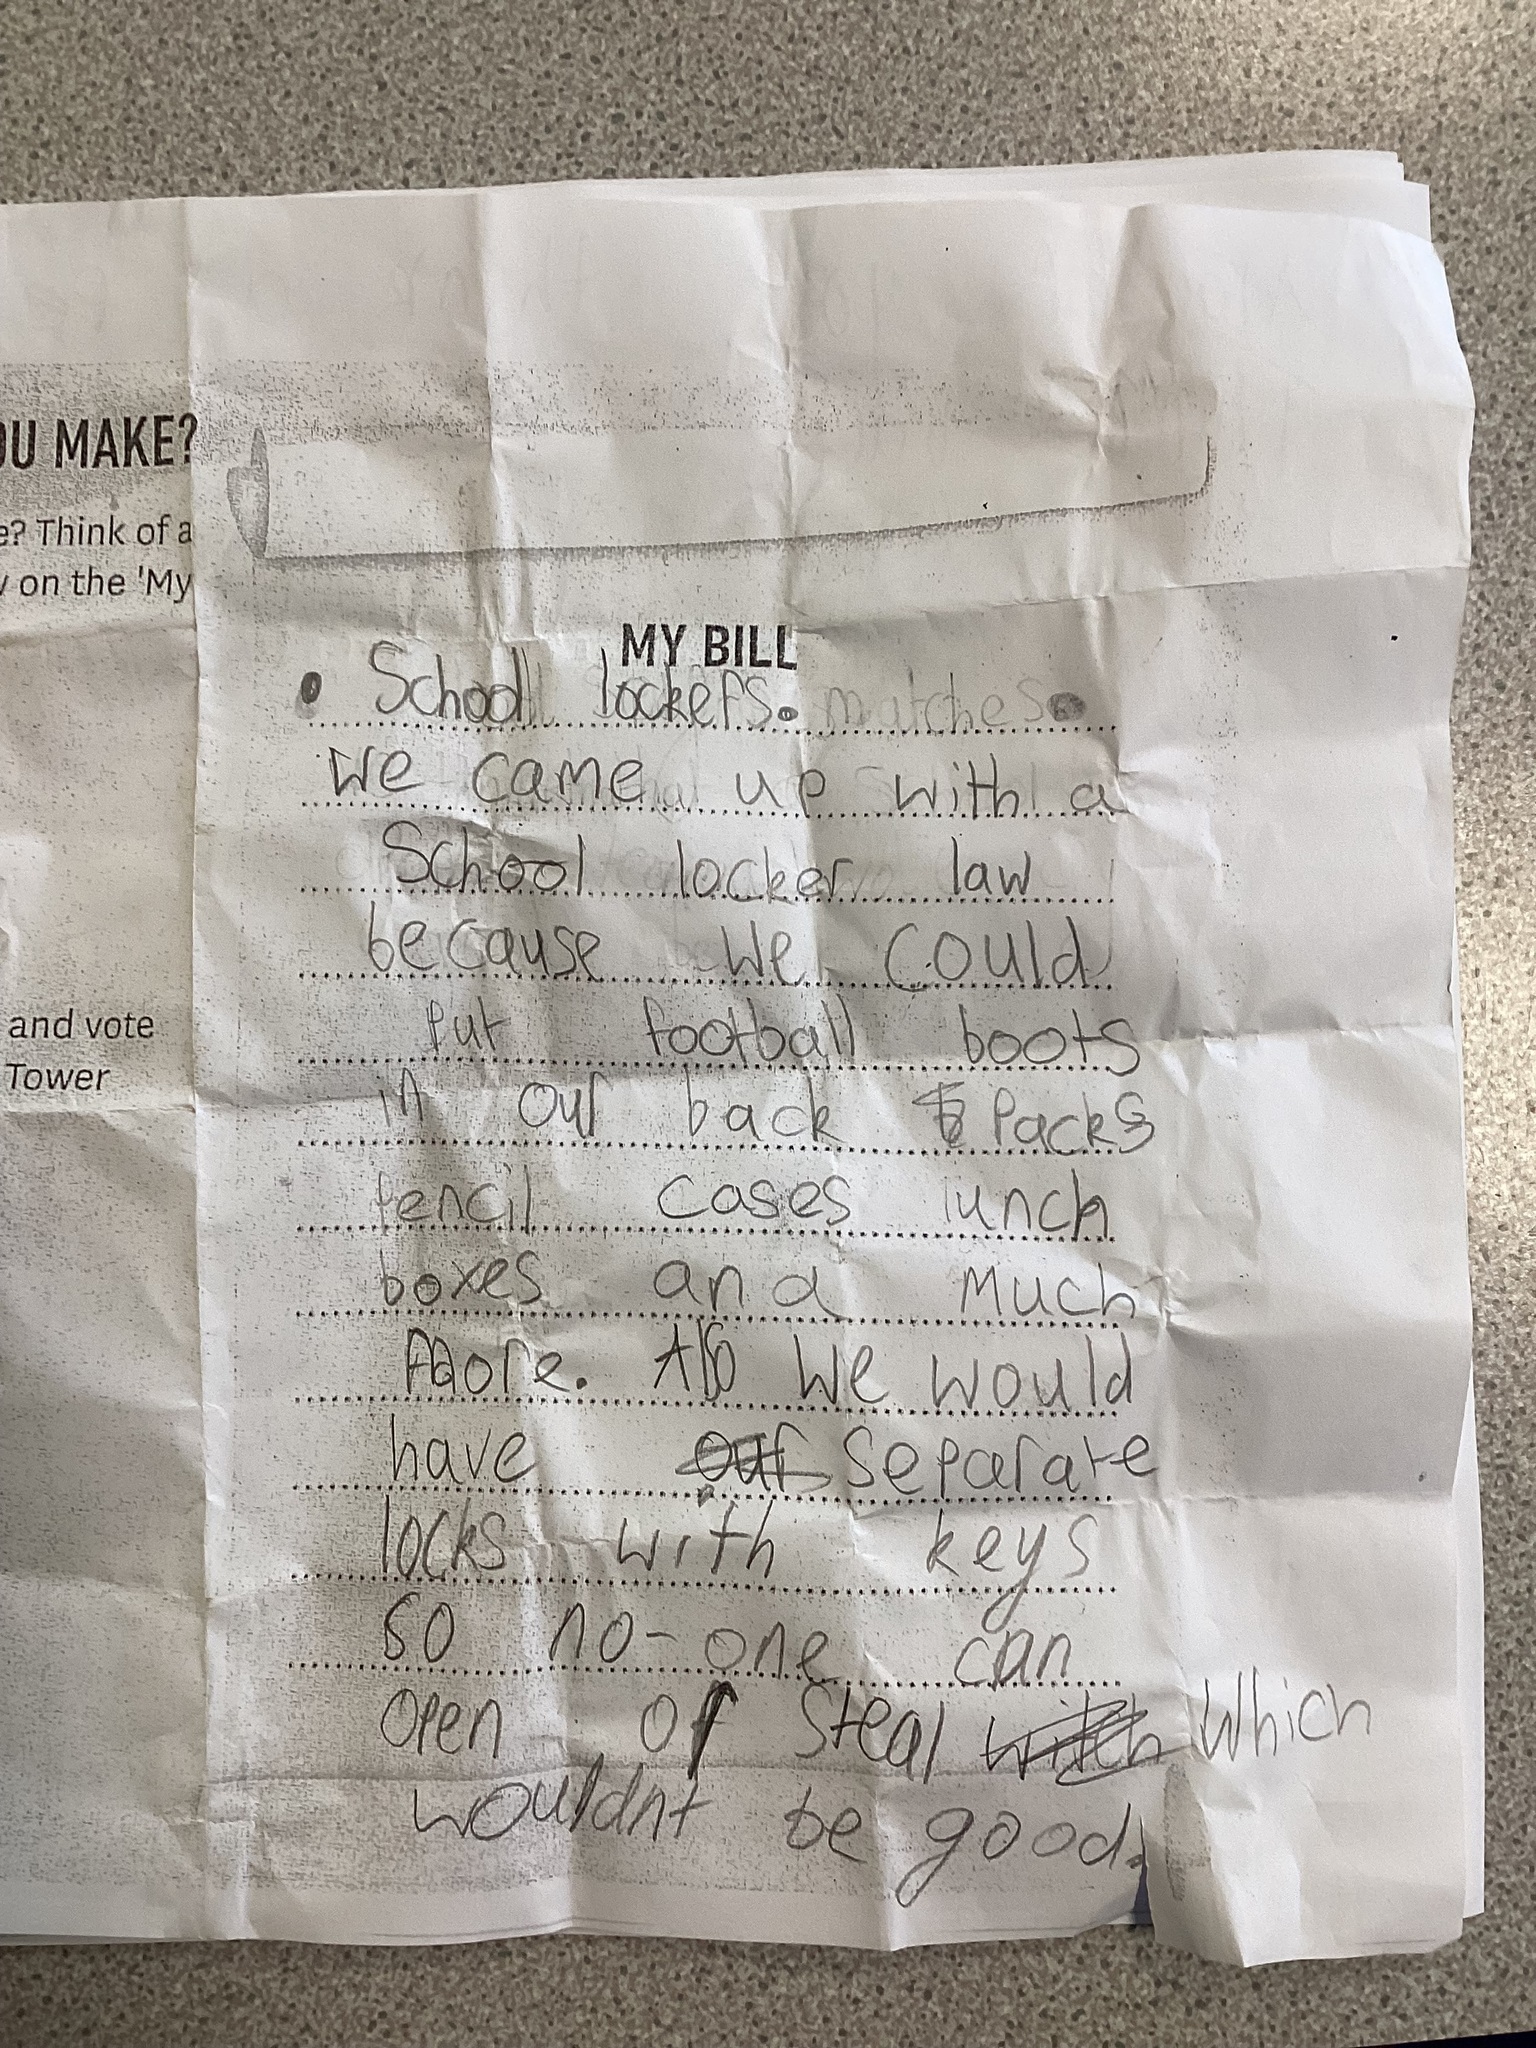 OU MAKE?
e? Think of a
w on the 'My
and vote
Tower
MY BILL
• School lockers. matches.
We came up with a
School locker law
because we could
Put football boots
in our back Packs
Pencil cases lunch
boxes and much
More. Also we would
have our separate
locks with keys
so no-one can
open or steal witch which
wouldnt be good.